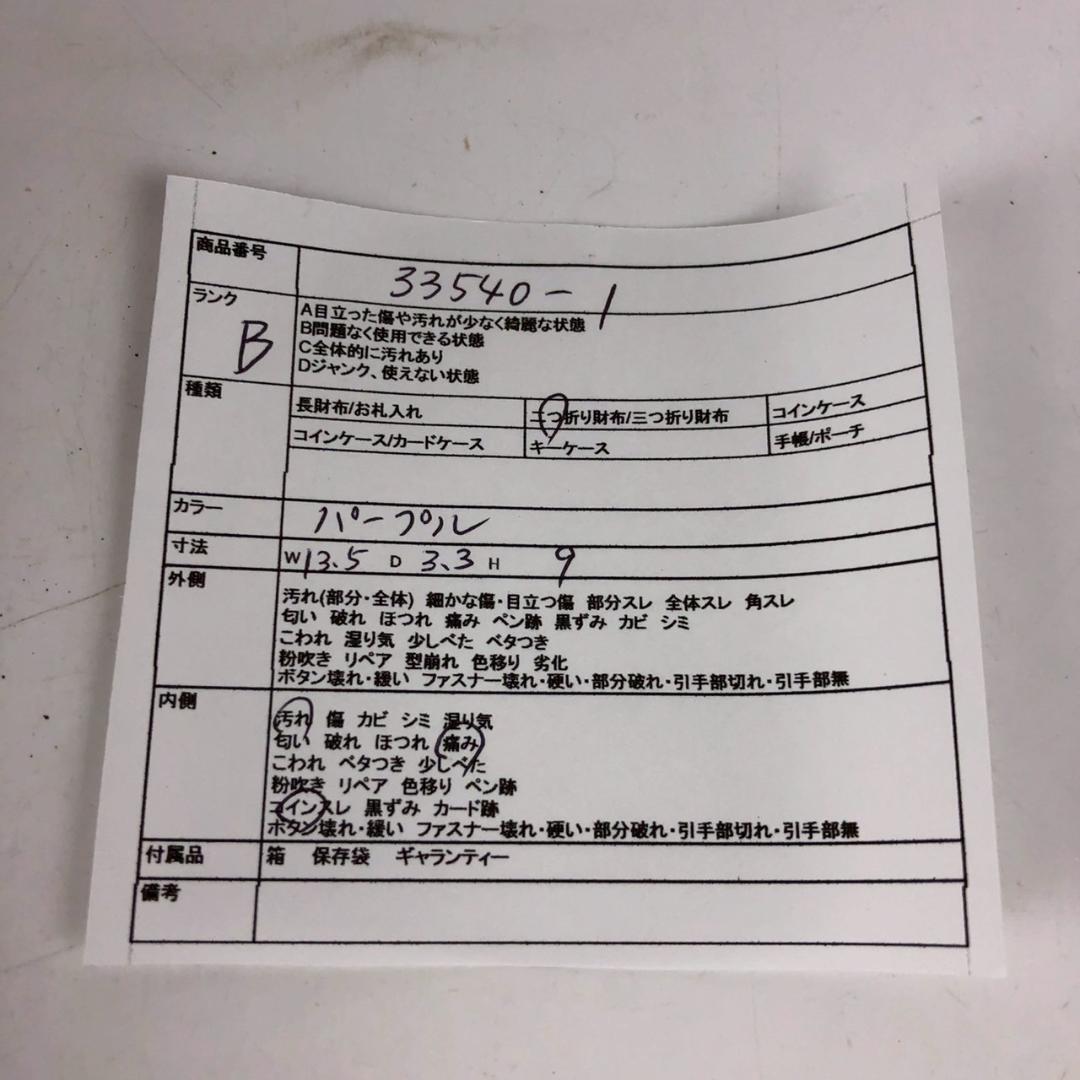 商品番号 33540-1
ランク B
A目立った傷や汚れが少なく綺麗な状態
B問題なく使用できる状態
C全体的に汚れあり
Dジャンク、使えない状態
種類
長財布/お札入れ 二つ折り財布/三つ折り財布 コインケース
コインケース/カードケース キーケース 手帳/ポーチ
カラー パープル
寸法 W13.5 D 3.3 H 9
外側
汚れ(部分・全体) 細かな傷・目立つ傷 部分スレ 全体スレ 角スレ
匂い 破れ ほつれ 痛み ペン跡 黒ずみ カビ シミ
こわれ 湿り気 少しべた ベタつき
粉吹き リペア 型崩れ 色移り 劣化
ボタン壊れ・緩い ファスナー壊れ・硬い・部分破れ・引手部切れ・引手部無
内側
汚れ 傷 カビ シミ 湿り気
匂い 破れ ほつれ 痛み
こわれ ベタつき 少しべた
粉吹き リペア 色移り ペン跡
コインスレ 黒ずみ カード跡
ボタン壊れ・緩い ファスナー壊れ・硬い・部分破れ・引手部切れ・引手部無
付属品 箱 保存袋 ギャランティー
備考